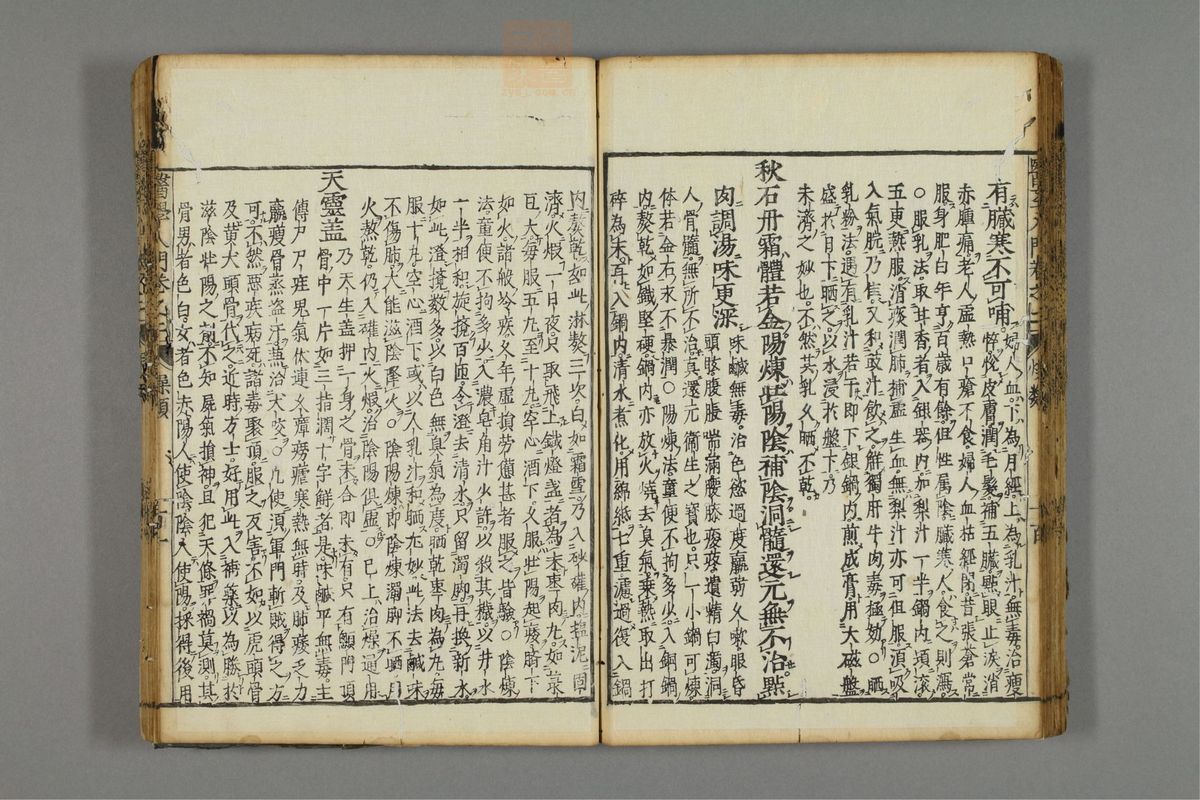 有臟寒不可哺 婦人血下為月經上為乳汁無毒治瘦
悴悅皮膚潤毛髮補五臟點眼止淚消
赤腫痛老人虛熱口瘡不食婦人血枯經閉昔張蒼常
服身肥白年享百歲有餘但性屬陰臟寒人食之則瀉
○服乳法取其香者入銀器內加梨汁一半鍋內頃滾
五更熱服消痰潤肺補虛生血無梨汁亦可但服須吸
入氣脘乃隹又和豉汁飲之解獨肝牛肉毒極妙○晒
乳粉法遇有乳汁若干即下銀鍋內煎成膏用大磁盤
盛於日下晒之以水浸於盤下乃
未濟之妙也不然其乳久晒不乾
秋石丹霜體若金陽煉壯陽陰補陰洞髓還元無不治點
肉調湯味更深 味鹹無毒治色慾過度羸弱久嗽服昏
頭眩腹脹喘滿腰膝痠疼遺精白濁洞
人骨髓無所不治真還元衛生之寶也只一小鍋可煉
体若金石永不暴潤○陽煉法童便不拘多少入銅鍋
內熬乾如鐵堅硬鍋內亦放火燒去臭氣乘熱取出打
碎為末再入鍋內清水煮化用綿紙七重濾過復入鍋
內熬乾如此淋熬三次白如霜雪乃入砂礶內塩泥固
濟火煅一日夜只取飛上鐵燈盞者為末棗肉丸如菉
豆大每服五丸至十丸空心酒下久服壯陽起痿臍下
如火諸般冷疾久年虛損勞憊甚者服之皆驗○陰煉
法童便不拘多少入濃皂角汁少許以殺其穢以井水
一半相和旋攪百匝令澄去清水只留濁脚再換新水
如此澄攪數多以白色無臭氣為度晒乾棗肉為丸每
服十丸空心酒下或以人乳汁和晒尤妙此法去鹹味
不傷肺大能滋陰降火○陰陽煉即陰煉濁脚不晒用
火熬乾仍入礶內火煅治陰陽俱虛○已上治燥通用
天靈盖 乃天生盖押一身之骨未合即未有只有顖門頂
骨中一片如三指濶十字觧者是味鹹平無毒主
傳尸尸疰鬼氣依連久瘴癆瘧寒熱無時及肺痿乏力
羸瘦骨蒸盗汗兼治犬咬○凡使須軍門斬賊得之方
可不然惡疾病死諸毒聚頂服之反害不如以虎頭骨
及黄犬頭骨代之近時方士好用此入補藥以為勝於
滋陰壯陽之劑不知屍氣損神且犯天條罪禍莫測其
骨男者色白女者色赤陽人使陰陰人使陽採得後用